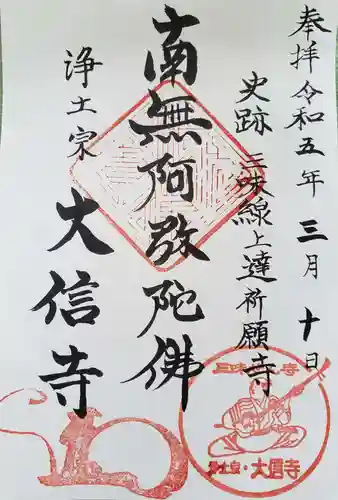 奉拝 令和五年 三月 十日
史跡 三味線上達祈願寺
南無阿弥陀佛
浄土宗
大信寺
三味線寺
浄土宗・大信寺